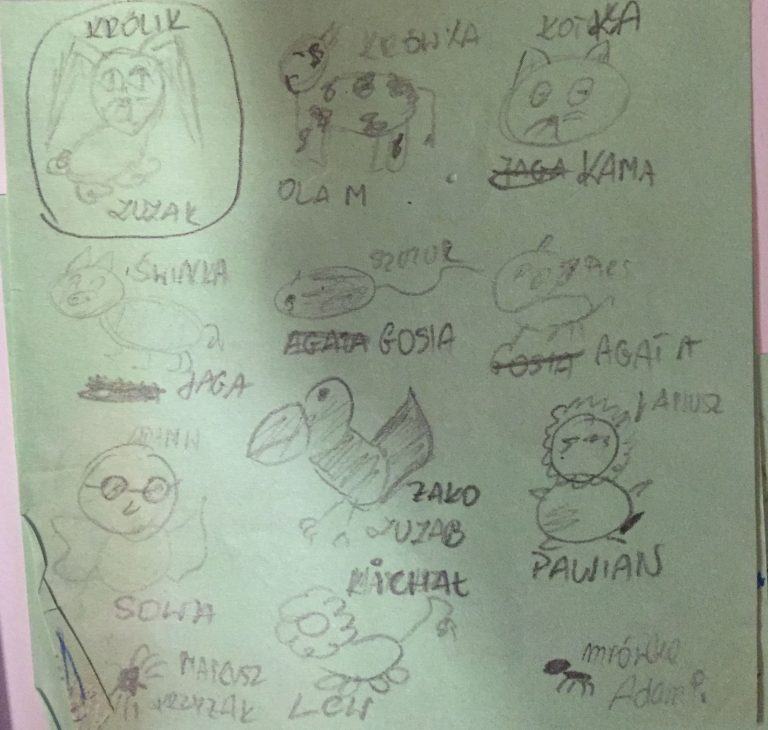 KRÓLIK
ZUZAK
KRÓWKA
OLA M
KOTKA
JAGA KAMA
ŚWINKA
JAGA
SZCZUR
AGATA GOSIA
PIES
GOSIA AGATA
SOWA
ZAKO
ZUZAB
JANUSZ
PAWIAN
MATEUSZ
KRZYŻAK
MICHAŁ
LEW
mrówka
Adam P.